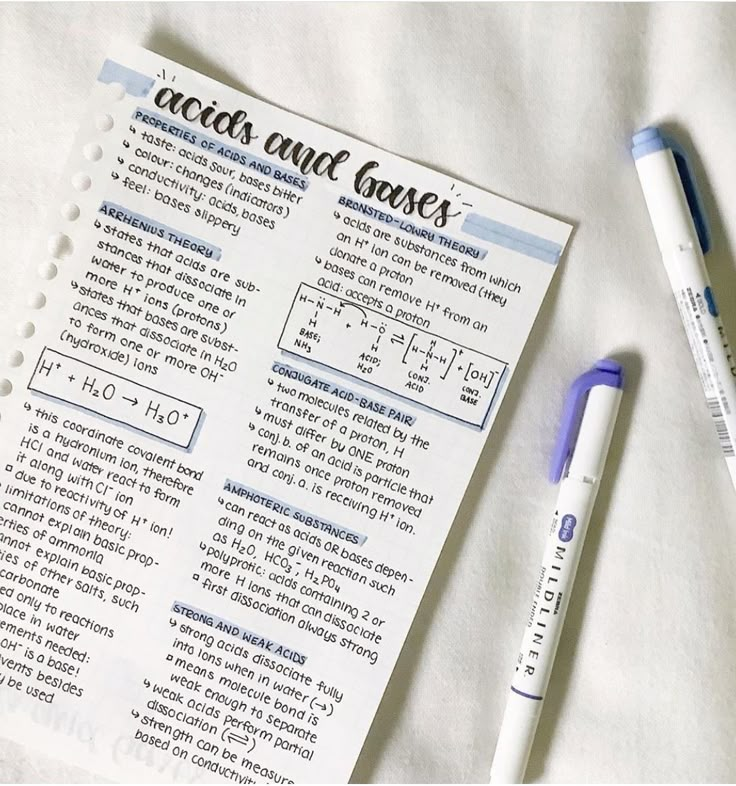 acids and bases
PROPERTIES OF ACIDS AND BASES
↳ taste: acids sour, bases bitter
↳ colour: changes (indicators)
↳ conductivity: acids, bases
↳ feel: bases slippery
ARRHENIUS THEORY
↳ states that acids are sub-
stances that dissociate in
water to produce one or
more H⁺ ions (protons)
↳ states that bases are subst-
ances that dissociate in H₂O
to form one or more OH⁻
(hydroxide) ions
H⁺ + H₂O → H₃O⁺
↳ this coordinate covalent bond
is a hydronium ion, therefore
HCl and water react to form
it along with Cl⁻ ion
▫ due to reactivity of H⁺ ion!
limitations of theory:
cannot explain basic prop-
erties of ammonia
cannot explain basic prop-
ties of other salts, such
carbonate
ed only to reactions
place in water
ements needed:
OH⁻ is a base!
vents besides
y be used
BRONSTED-LOWRY THEORY
↳ acids are substances from which
an H⁺ ion can be removed (they
donate a proton
↳ bases can remove H⁺ from an
acid: accepts a proton
H-N-H + H-O ⇌ [H-N-H]⁺ + [OH]⁻
H H H H
BASE; NH₃
ACID; H₂O
CONJ. ACID
CONJ. BASE
CONJUGATE ACID-BASE PAIR
↳ two molecules related by the
transfer of a proton, H
↳ must differ by ONE proton
↳ conj. b. of an acid is particle that
remains once proton removed
and conj. a. is receiving H⁺ ion.
AMPHOTERIC SUBSTANCES
↳ can react as acids OR bases depen-
ding on the given reaction such
as H₂O, HCO₃⁻, H₂PO₄
↳ polyprotic: acids containing 2 or
more H ions that can dissociate
▫ first dissociation always strong
STRONG AND WEAK ACIDS
↳ strong acids dissociate fully
into ions when in water (→)
▫ means molecule bond is
weak enough to separate
↳ weak acids perform partial
dissociation (⇌)
↳ strength can be measure
based on conductivit
Mild ink
MILDLINER
DOUBLE-SIDED
ZEBRA
ZEBRA
MILD